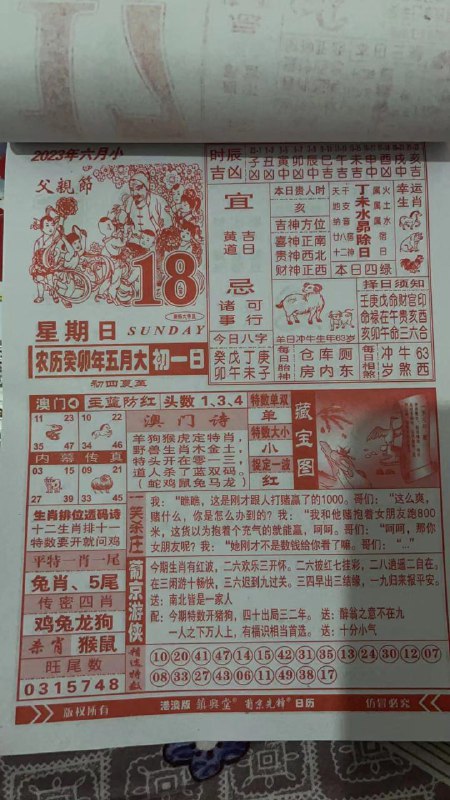 2023年六月小
父親節
18
星期日 SUNDAY
农历癸卯年五月大 初一日
初四夏至
时辰
吉凶
子 丑 寅 卯 辰 巳 午 未 申 酉 戌 亥
宜
黄道
吉日
忌
诸事
可行
本日贵人时
亥
吉神方位
喜神正南
贵神西北
财神正西
天干
地支
纳音
廿八宿
十二神
丁未水昴除日
属火
属土
属水
本日四绿
幸运生肖
羊日冲牛生年63岁
择日须知
壬庚戊命财官印
命禄在午贵亥酉
亥卯午命三六合
今日八字
癸戊丁庚
卯午未子
每日胎神
仓库
厕内
房东
每日相煞
冲牛63
岁煞西
澳门 主蓝防红 头数1、3、4
11 23
35 47
10 22
34 46
内幕传真
03 15
27 39
09 21
33 45
澳门诗
羊狗猴虎定特肖，
野兽生肖木金土。
特头开在零一三，
道人杀了蓝双码。
（蛇鸡鼠兔马龙）
特数单双
单
特数大小
小
捉定一波
红
藏宝图
生肖排位透码诗
十二生肖排十一
特数要开就问鸡
平特一肖一尾
兔肖、5尾
传密四肖
鸡兔龙狗
杀肖 猴鼠
旺尾数
0315748
一笑杀庄
我：“瞧瞧，这是刚才跟人打赌赢了的1000。哥们：“这么爽，
赌什么，你是怎么办到的？我：“我和他赌抱着女朋友跑800
米，这货以为抱着个充气的就能赢，呵呵。哥们：“呵呵，那你
女朋友呢？我：“她刚才不是数钱给你看了嘛。哥们：“ …”
葡京游侠
今期生肖有红波，二六欢乐三开怀。二六披红七挂彩，二八逍遥二自在。
在三闲游十畅快，三六迟到九过关。三四早出三结缘，一九归来报平安。
送：南北皆是一家人
配：今期特数开猪狗，四十出局三二年。 送：醉翁之意不在九
一人之下万人上，有横识相当首选。 送：十分小气
精选特数
10 20 41 47 14 02 42 31 35 13 24 30 12 07
08 33 27 43 06 11 49 38 17
版权所有
港澳版 鎮興堂® 葡京先鋒® 日历
仿冒必究